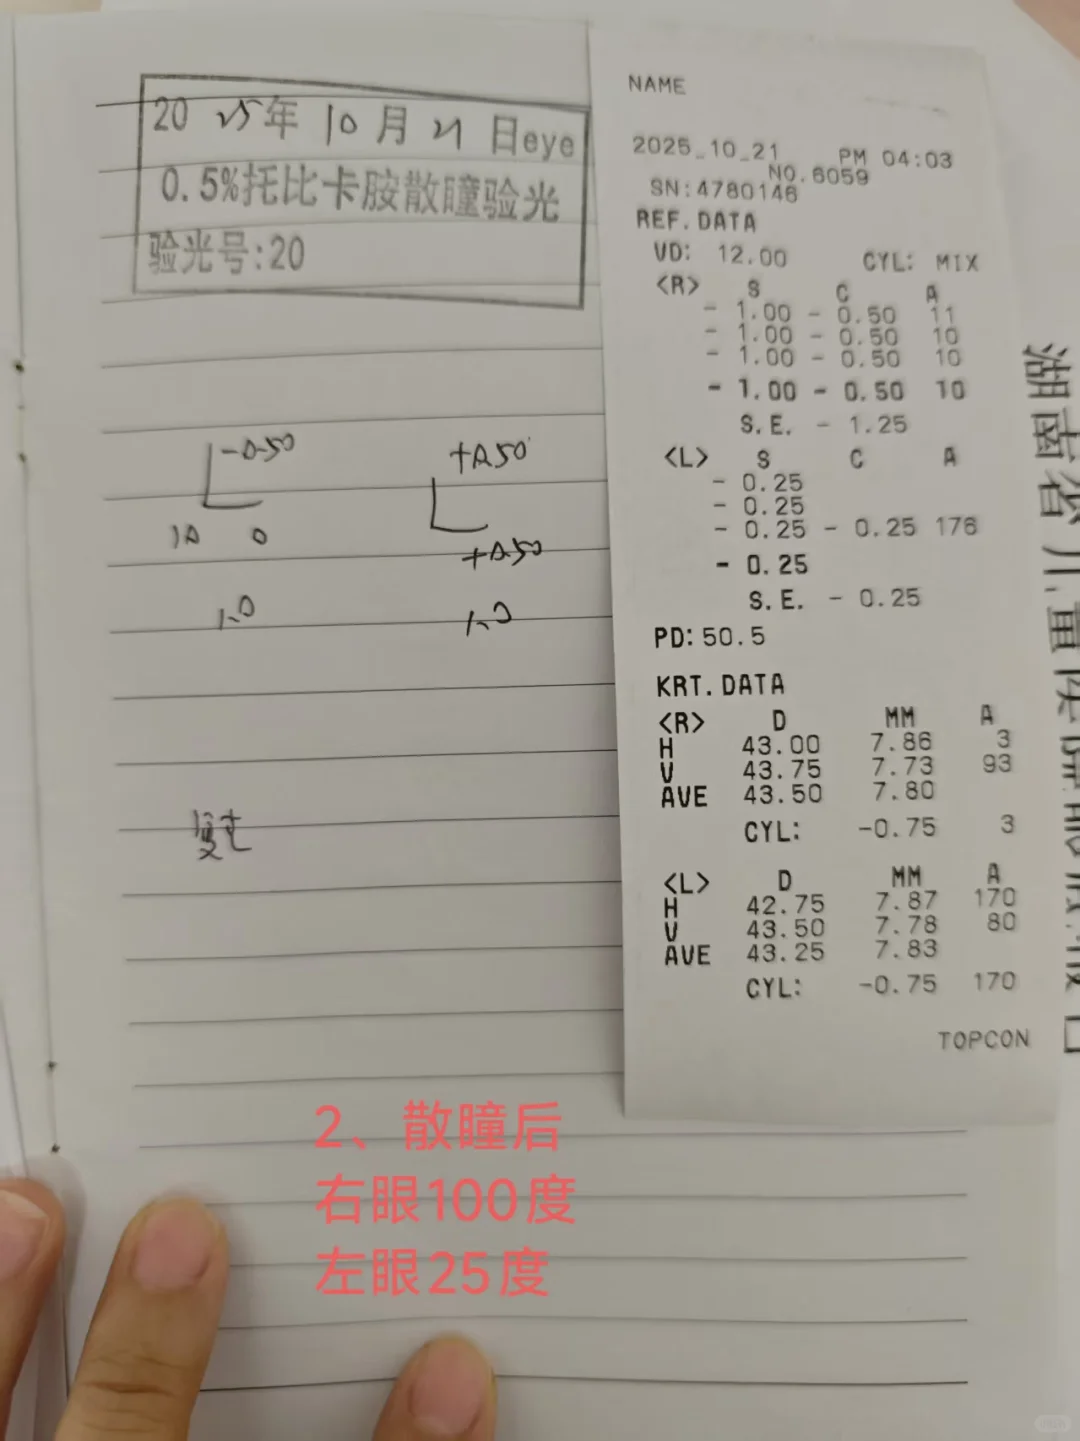 20 25年 10 月 21 日eye
0.5%托比卡胺散瞳验光
验光号:20
-0.50
+0.50
10
0
+0.50
1.0
1.0
NAME
2025_10_21 PM 04:03
NO.6059
SN:4780146
REF.DATA
VD: 12.00 CYL: MIX
<R> S C A
- 1.00 - 0.50 11
- 1.00 - 0.50 10
- 1.00 - 0.50 10
- 1.00 - 0.50 10
S.E. - 1.25
<L> S C A
- 0.25
- 0.25
- 0.25 - 0.25 176
- 0.25
S.E. - 0.25
PD:50.5
KRT.DATA
<R> D MM A
H 43.00 7.86 3
V 43.75 7.73 93
AVE 43.50 7.80
CYL: -0.75 3
<L> D MM A
H 42.75 7.87 170
V 43.50 7.78 80
AVE 43.25 7.83
CYL: -0.75 170
TOPCON
湖南省儿童医院
2、散瞳后
右眼100度
左眼25度